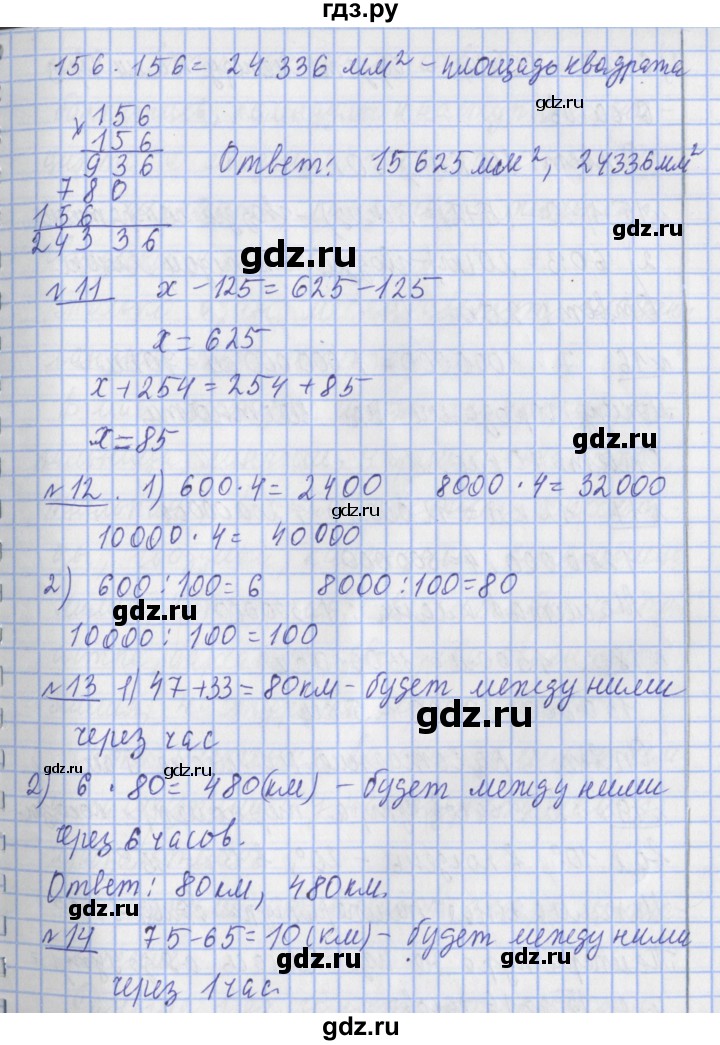 гдз.ру
156 · 156 = 24 336 мм² - площадь квадрата
gdz.ru
× 156
156
936
780
156
24336
Ответ: 15625 мм², 24336 мм²
gdz.ru
gdz.ru
№11 x - 125 = 625 - 125
x = 625
x + 254 = 254 + 85
x = 85
gdz.ru
№12. 1) 600 · 4 = 2400 8000 · 4 = 32000
gdz.ru
10000 · 4 = 40000
2) 600 : 100 = 6 8000 : 100 = 80
gdz.ru
10000 : 100 = 100
№13 1) 47 + 33 = 80 км - будет между ними
gdz.ru
через час
gdz.ru gdz.ru
2) 6 · 80 = 480 (км) - будет между ними
через 6 часов.
Ответ: 80 км, 480 км.
gdz.ru
№14 75 - 65 = 10 (км) - будет между ними
gdz.ru gdz.ru
через 1 час
gdz.ru